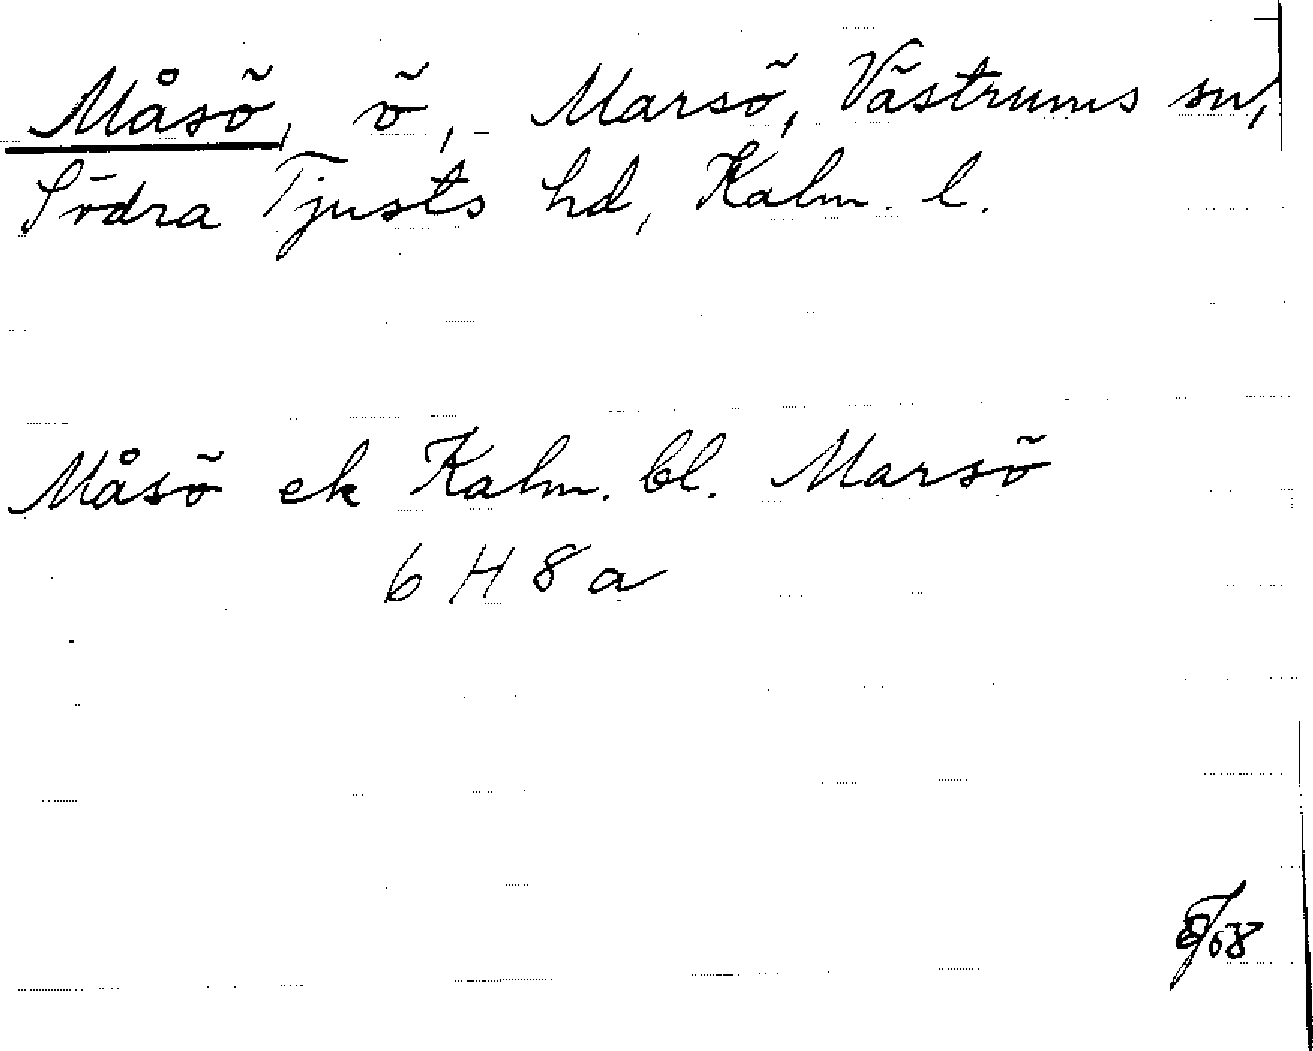 Måsö, ö, Marsö, Västrums sn,
Södra Tjusts hd, Kalm. l.
Måsö ek Kalm. bl. Marsö
6 H 8 a